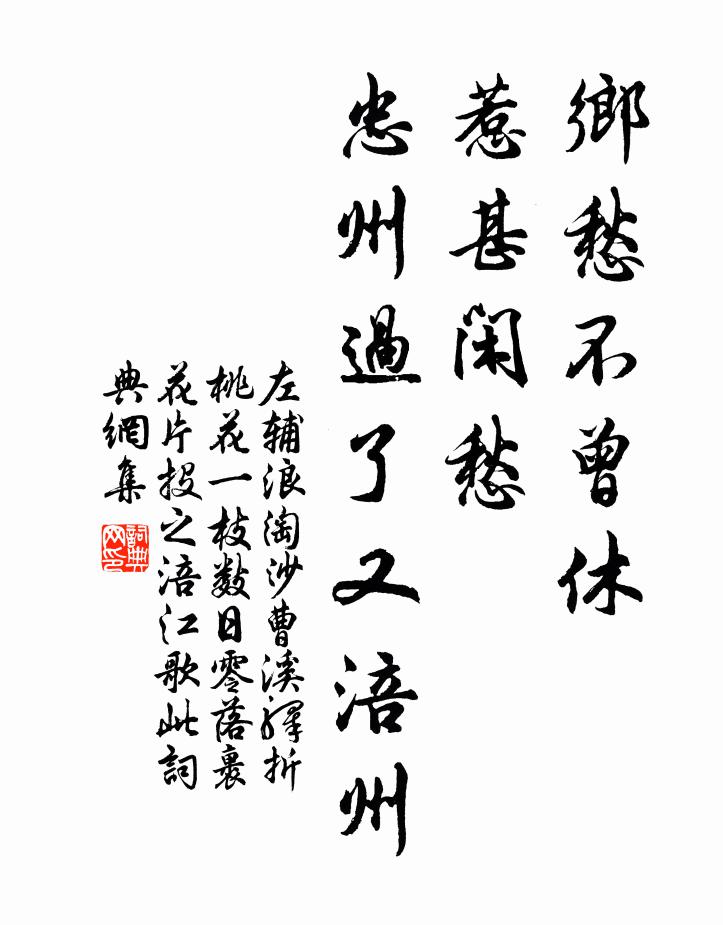 鄉愁不曾休
惹甚閑愁
忠州過了又涪州
左輔浪淘沙曹溪驛折
桃花一枝數日零落裹
花片投之涪江歌此詞
典網集
詞典
网印